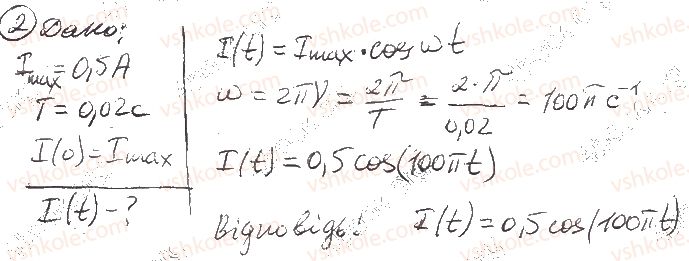 2 Дано:
I max = 0,5 A
T = 0,02 c
I(0) = I max
I(t) - ?
I(t) = I max · cos ω t
ω = 2πν = 2π/T = 2·π/0,02 = 100π c⁻¹
I(t) = 0,5 cos(100πt)
Відповідь: I(t) = 0,5 cos(100πt)